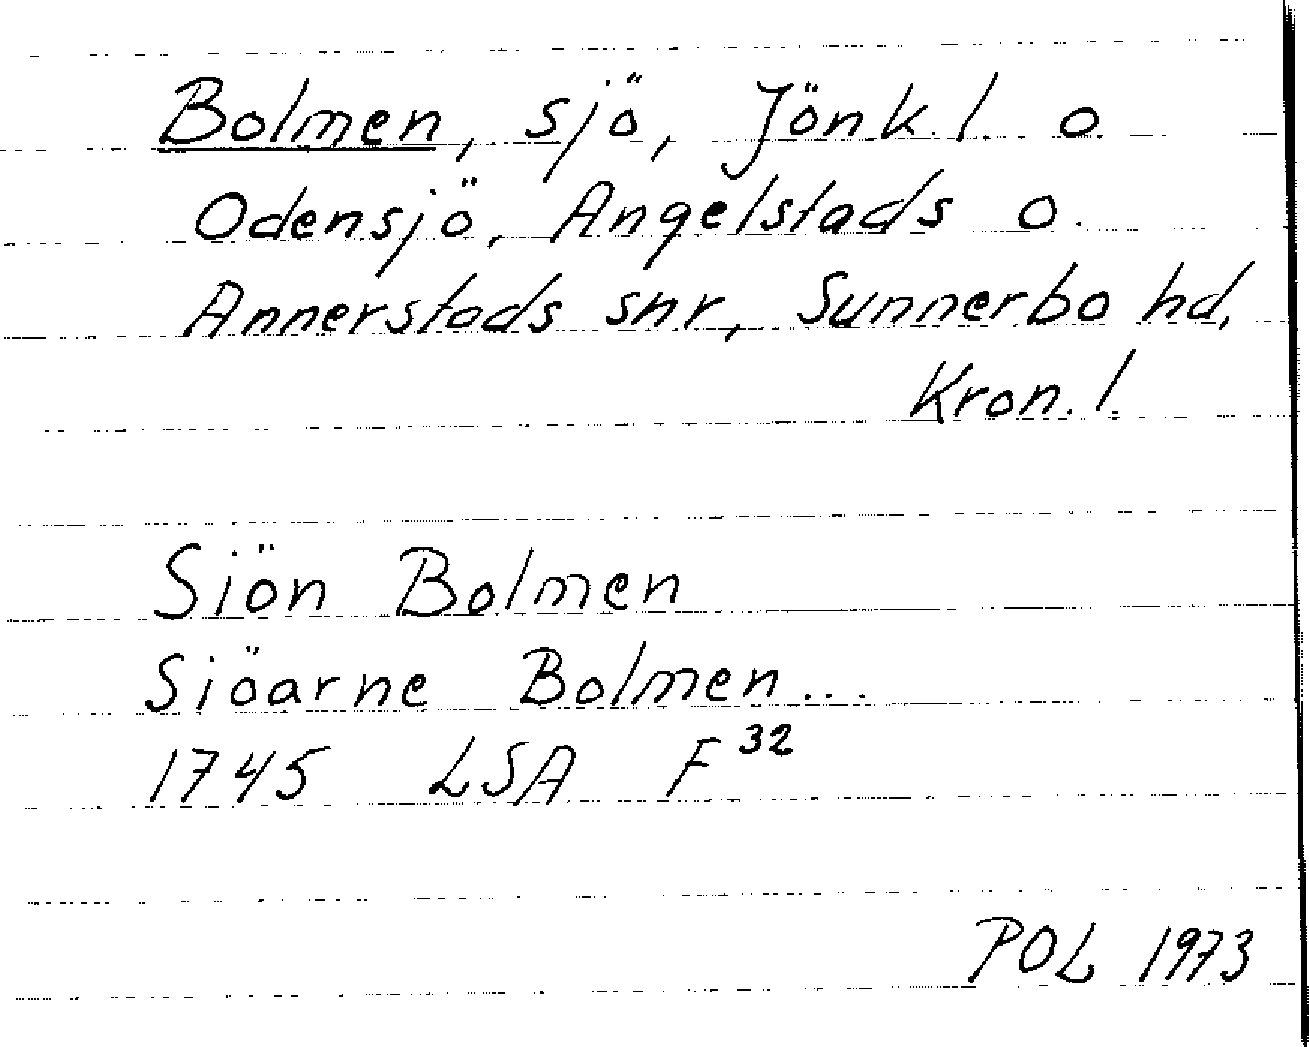 Bolmen, sjö, Jönk. l. o.
Odensjö, Angelstads o.
Annerstads snr, Sunnerbo hd,
Kron. l.
Siön Bolmen
Siöarne Bolmen...
1745 LSA F 32
POL 1973